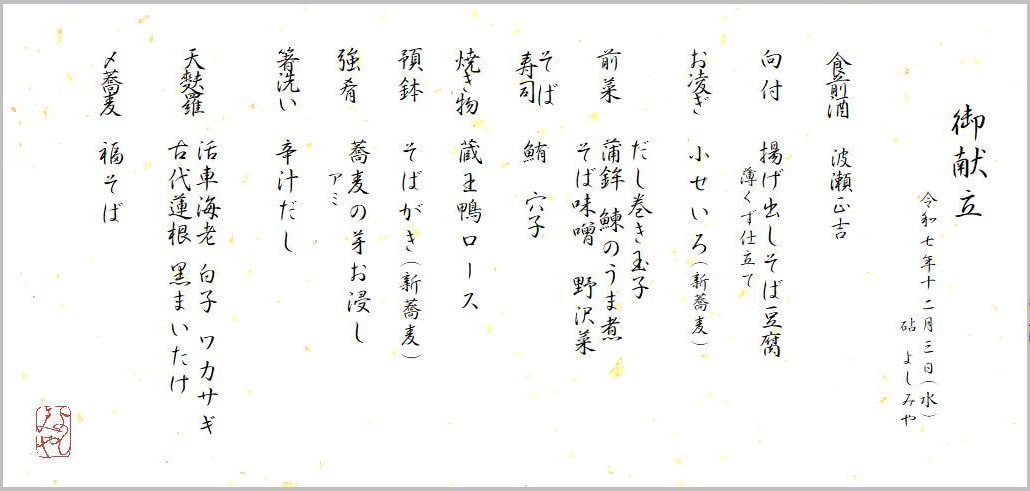 御献立
令和七年十二月三日(水)
砧 よしみや
食前酒 波瀬正吉
向付 揚げ出しそば豆腐
薄くず仕立て
お凌ぎ 小せいろ(新蕎麦)
前菜 だし巻き玉子
蒲鉾 鰊のうま煮
そば味噌 野沢菜
そば寿司 鮪 穴子
焼き物 蔵王鴨ロース
預鉢 そばがき(新蕎麦)
強肴 蕎麦の芽お浸し
アミ
箸洗い 辛汁だし
天麩羅 活車海老 白子 ワカサギ
古代蓮根 黒まいたけ
〆蕎麦 福そば